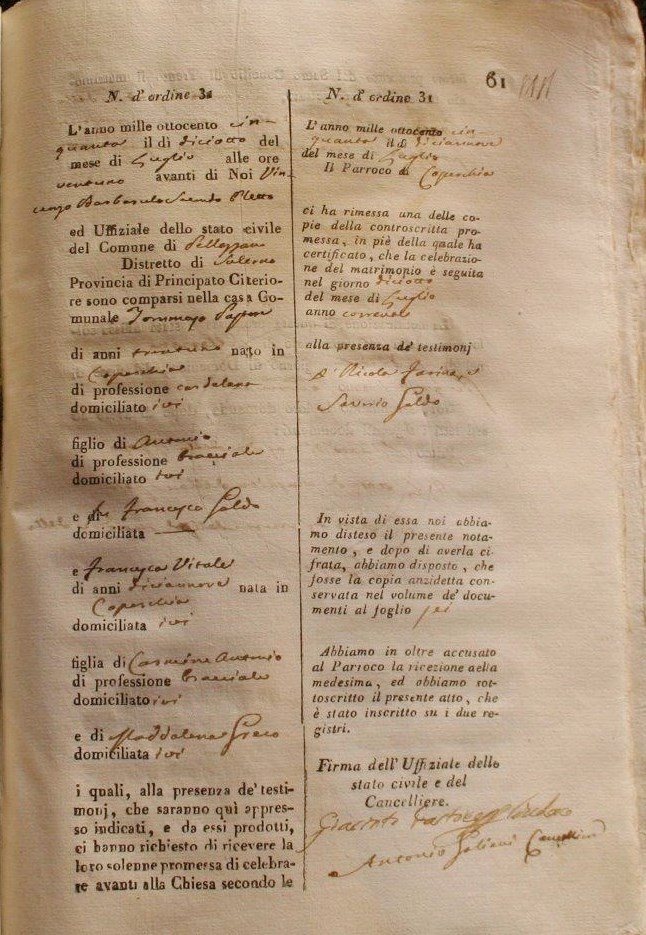 61
N. d'ordine 31
L'anno mille ottocento cin-
quanta il dì diciotto del
mese di Luglio alle ore
ventuno avanti di Noi Vin-
cenzo Barbarulo Secondo Eletto
ed Uffiziale dello stato civile
del Comune di Pellezzano
Distretto di Salerno
Provincia di Principato Citerio-
re sono comparsi nella casa Co-
munale Tommaso
di anni trentuno nato in
Capezzhia
di professione
domiciliato ivi
figlio di Antonio
di professione bracciale
domiciliato ivi
e di Francesca Galdo
domiciliata —
e Francesca Vitale
di anni diciannove nata in
Capezzhia
domiciliata ivi
figlia di Carmine Antonio
di professione bracciale
domiciliato ivi
e di Maddalena Greco
domiciliata ivi
i quali, alla presenza de' testi-
monj, che saranno quì appres-
so indicati, e da essi prodotti,
ci hanno richiesto di ricevere la
loro solenne promessa di celebra-
re avanti alla Chiesa secondo le
N. d'ordine 31
L'anno mille ottocento cin-
quanta il dì diciannove
del mese di Luglio
Il Parroco di Capezzhia
ci ha rimessa una delle co-
pie della controscritta pro-
messa, in piè della quale ha
certificato, che la celebrazio-
ne del matrimonio è seguita
nel giorno diciotto
del mese di Luglio
anno corrente
alla presenza de' testimonj
Nicola Farina, e
Saverio Galdo
In vista di essa noi abbia-
mo disteso il presente nota-
mento, e dopo di averla ci-
frata, abbiamo disposto, che
fosse la copia anzidetta con-
servata nel volume de' docu-
menti al foglio sei
Abbiamo in oltre accusato
al Parroco la ricezione della
medesima, ed abbiamo sot-
toscritto il presente atto, che
è stato inscritto su i due re-
gistri.
Firma dell' Uffiziale dello
stato civile e del
Cancelliere.
Antonio Galiani Cancelliere